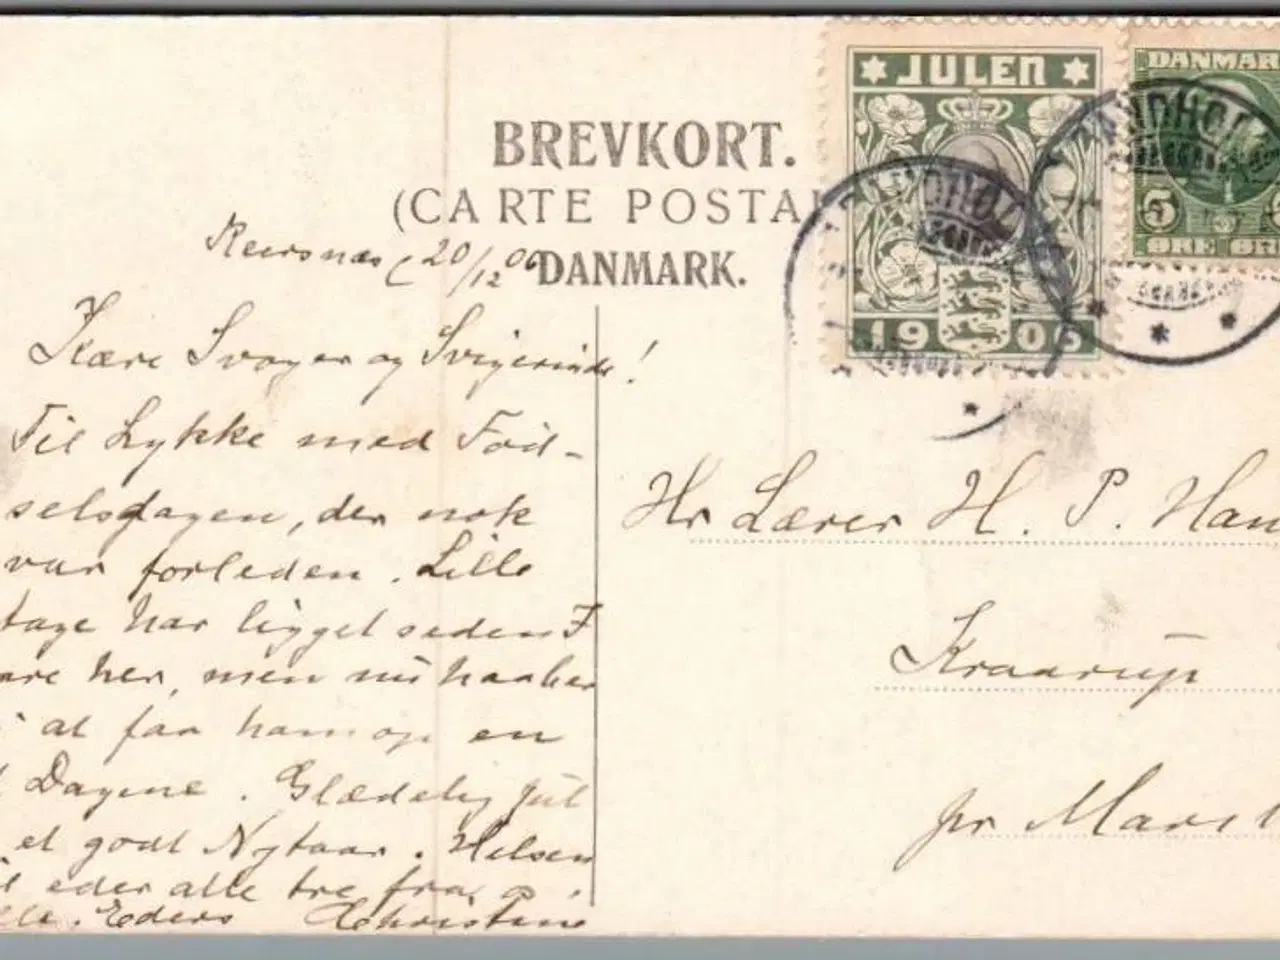 JULEN
DANMAR
BREVKORT.
(CARTE POSTA
DANMARK.
5
ØRE ØR
1906
Reersnæs 20/12 06
Kære Svoger og Svigerinde!
Til Lykke med Fød-
selsdagen, der nok
var forleden. Lille
har ligget siden
her, men nu haaber
at faa ham op en
Dagene. Glædelig Jul
et godt Nytaar. Hilsen
eder alle tre fra
Eders Christine
Hr Lærer H. P. Han
Kraarup
pr Mars